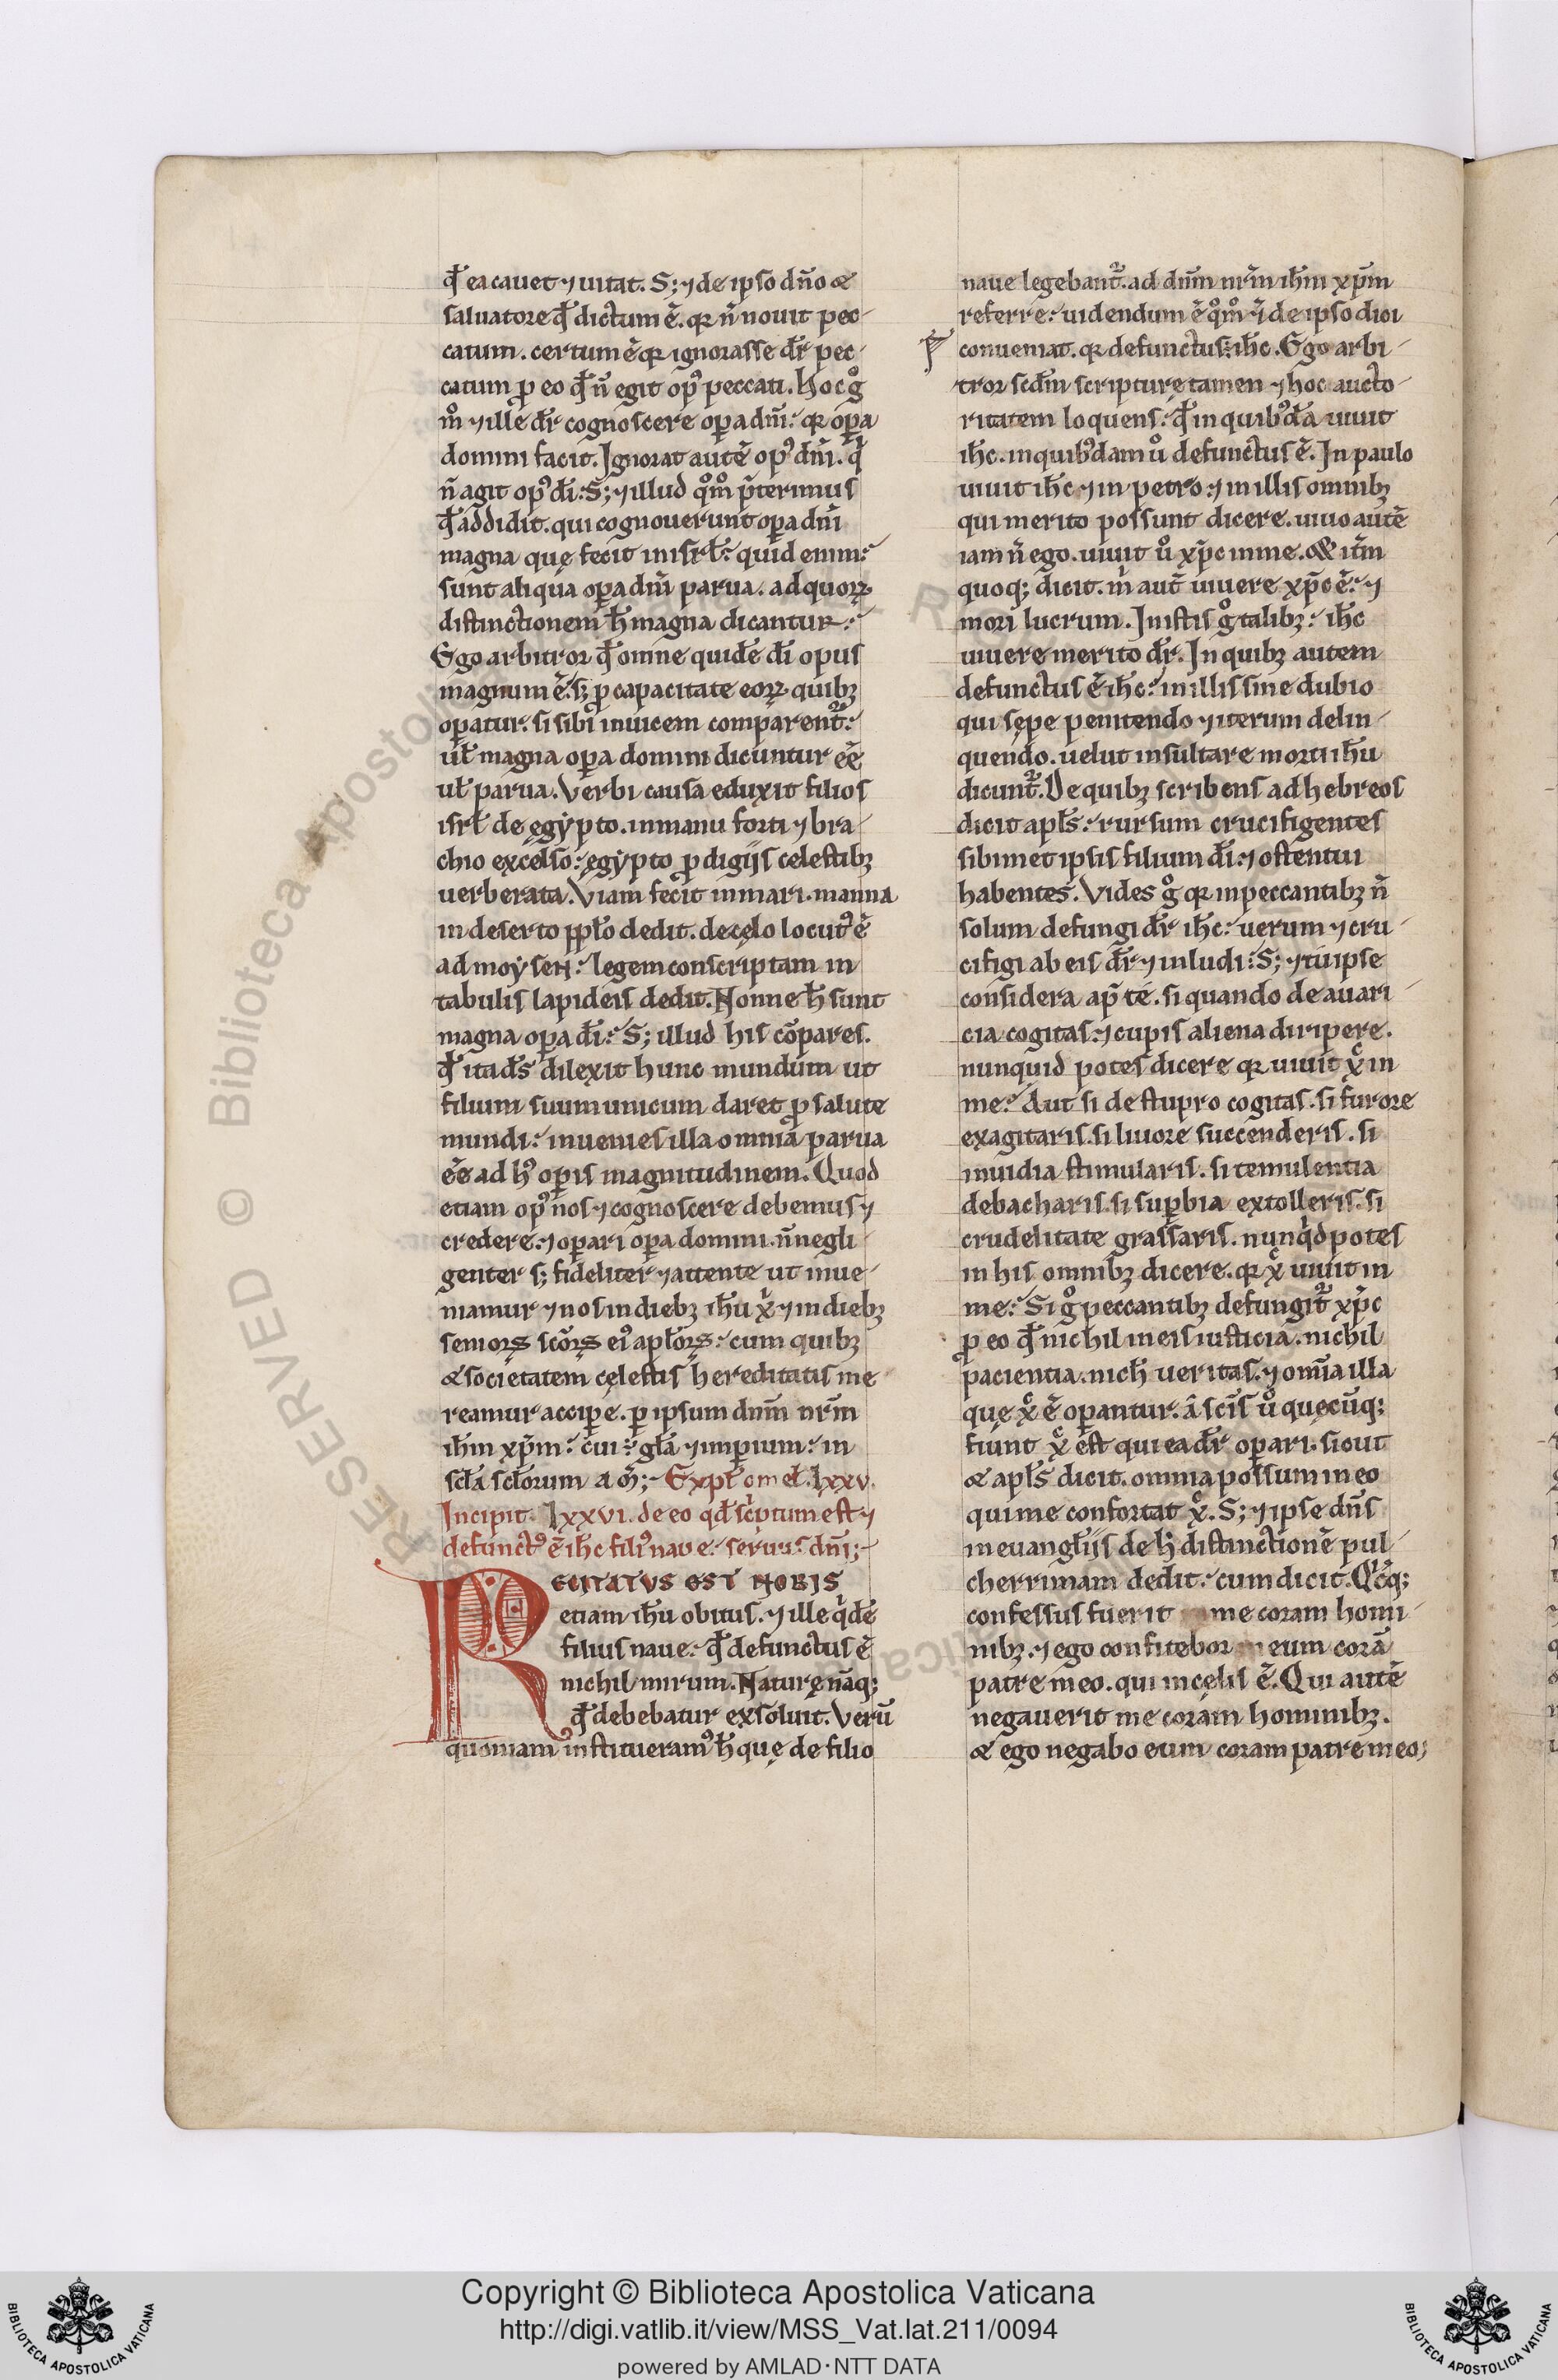 qđ ea cauet ⁊ uitat. S; ⁊ de ipso dn̄o &
saluatore qđ dictum ē. q̄ n̄ nouit pec-
catum. certum ē q̄ ignorasse dr̄ pec-
catum ꝓ eo qđ n̄ egit opꝰ peccati. Hoc gͦ
mͦ ⁊ ille dr̄ cognoscere oꝑa dn̄i. q̄ oꝑa
domini facit. Ignorat autē opꝰ dn̄i. q̇
n̄ agit opꝰ dī. S; ⁊ illud qͦmͦ p̄terimus
qđ addidit. qui cognouerunt oꝑa dn̄i
magna quę fecit in isrł. quid enim.
sunt aliqua oꝑa dn̄i parua. ad quoꝝ
distinctionem h̄ magna dicantur.
Ego arbitror qđ omne quidē dī opus
magnum ē. s; ꝓ capacitate eoꝝ quibꝫ
oꝑatur. si sibi inuicem comparent᷑.
uł magna oꝑa domini dicuntur eē
uł parua. Verbi causa eduxit filios
isrł de ęgypto. in manu forti ⁊ bra-
chio excelso. ęgypto ꝓdigiis celestibꝫ
uerberata. Viam fecit in mari. manna
in deserto ppło dedit. de cęlo locutꝰ ē
ad moysen. legem conscriptam in
tabulis lapideis dedit. Nonne h̄ sunt
magna oꝑa dī. S; illud his cōpares.
qđ ita ds̄ dilexit hunc mundum ut
filium suum unicum daret ꝓ salute
mundi. inuenies illa omnia parua
eē ad hꝰ oꝑis magnitudinem. Quod
etiam opꝰ nos ⁊ cognoscere debemus ⁊
credere. ⁊ oꝑari oꝑa domini. n̄ negli
genter s; fideliter ⁊ attente ut inue-
niamur ⁊ nos in diebꝫ ih̄u x̄ ⁊ in diebꝫ
senioꝝ scōꝝ eiꝰ apłoꝝ. cum quibꝫ
& societatem cęlestis hereditatis me
reamur accipe. ꝑ ipsum dnm̄ nrm̄
ihm̄ xpm̄. cui. gła ⁊ imperium. in
scła scłorum am̄;- Expł omeł. lxxv.
Incipit. lxxvi. de eo qđ scriptum est ⁊
defunctꝰ ē ihc̄ filiꝰ naue. seruus dn̄i;-
RECITATUS EST NOBIS
etiam ih̄u obitus. ⁊ ille q̇dē
filius naue. qđ defunctus ē
nichil mirum. Naturę nāq;
qđ debebatur exsoluit. Verū
quoniam institueramꝰ h̄ que de filio
naue legebant᷑. ad dnm̄ nrm̄ ihm̄ xpm̄
referre. uidendum ē qͦmͦ ⁊ de ipso dici
conueniat. q̄ defunctus ihc̄. Ego arbi-
tror scdm̄ scripturę tamen ⁊ hoc aucto-
ritatem loquens. qđ in quibꝰda uiuit
ihc̄. in quibꝰdam uͦ defunctus ē. In paulo
uiuit ihc̄ ⁊ in petro. ⁊ in illis omnibꝫ
qui merito possunt dicere. uiuo autē
iam n̄ ego. uiuit uͦ xp̄c in me. & itm̄
quoq; dicit. m̄ aut̄ uiuere xp̄c ē. ⁊
mori lucrum. In istis gͦ talibꝫ. ihc̄
uiuere merito dr̄. In quibꝫ autem
defunctus ē ihc̄. in illis sine dubio
qui sępe penitendo ⁊ iterum delin-
quendo. uelut insultare morti ih̄u
dicunt᷑. De quibꝫ scribens ad hebreos
dicit apłs. rursum crucifigentes
sibimet ipsis filium dī. ⁊ ostentui
habentes. Vides gͦ q̄ in peccantibꝫ n̄
solum defungi dr̄ ihc̄. uerum ⁊ cru-
cifigi ab eis dr̄ ⁊ inludi. S; ⁊ tu ipse
considera ap̄ te. si quando de auari-
cia cogitas. ⁊ cupis aliena diripere.
nunquid potes dicere q̄ uiuit x̄c in
me. Aut si de stupro cogitas. si furore
exagitaris. si liuore succenderis. si
inuidia stimularis. si temulentia
debacharis. si suꝑbia extolleris. si
crudelitate grassaris. nunq̇d potes
in his omnibꝫ dicere. q̄ x̄c uiuit in
me. Si gͦ peccantibꝫ defungit᷑ xp̄c
ꝓ eo qđ nichil in eis iusticia. nichil
pacientia. nich̄ ueritas. ⁊ omīa illa
quę x̄c ē oꝑantur. a scīs uͦ quęcūq;
fiunt x̄c est qui ea dr̄ oꝑari. sicut
& apłs dicit. omnia possum in eo
qui me confortat x̄c. S; ⁊ ipse dn̄s
in euangłiis de h̄ distinctionē pul-
cherrimam dedit. cum dicit. Qc̄q;
confessus fuerit me coram homi-
nibꝫ. ⁊ ego confitebor eum corā
patre meo. qui in cęlis ē. Qui autē
negauerit me coram hominibꝫ.
& ego negabo eum coram patre meo;
RESERVED © Biblioteca Apostolica
Copyright © Biblioteca Apostolica Vaticana
http://digi.vatlib.it/view/MSS_Vat.lat.211/0094
powered by AMLAD·NTT DATA
BIBLIOTECA APOSTOLICA VATICANA
BIBLIOTECA APOSTOLICA VATICANA